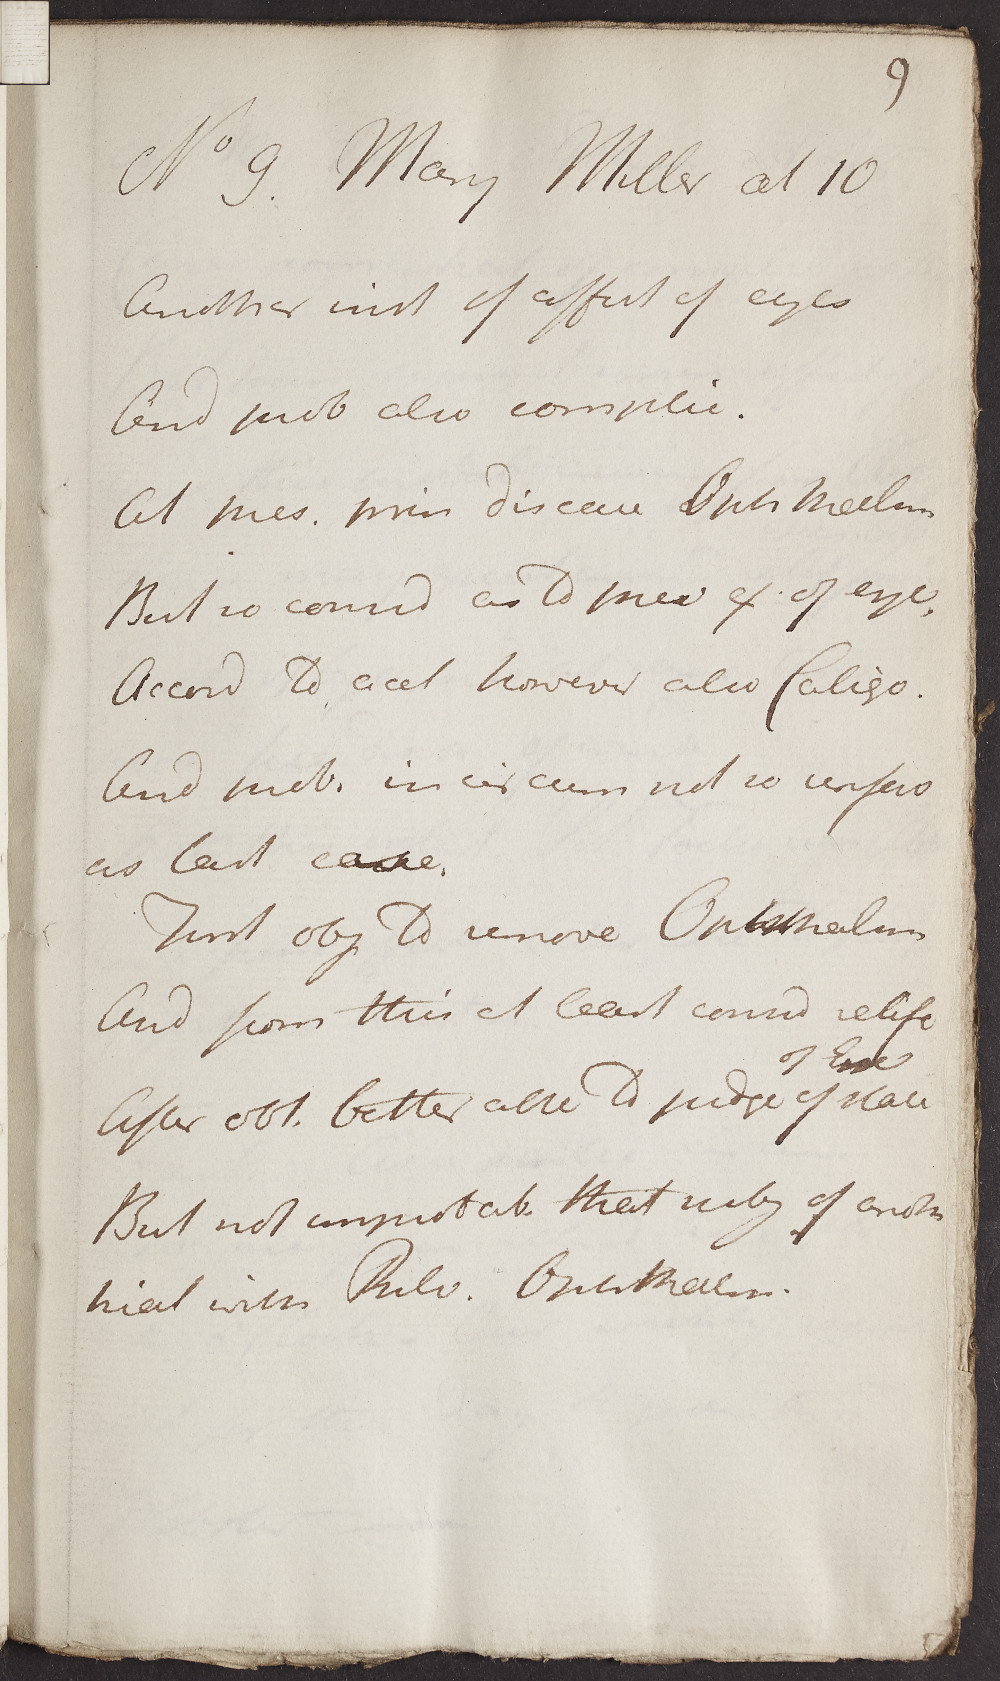 9
No 9. Mary Miller æt 10
Another inst of affect of eyes
And prob also complic.
At pres. prin disease Ophthalm
But so consid as to prev ex. of eye.
Accord to acct however also Caligo.
And prob. in circum not so unfavo
as last case.
First obj to remove Ophthalm
And from this at least consid relief
of Eye
After obt. better able to judge of state
But not improbab. that subj of anoth
trial with Pulv. Ophthalm.